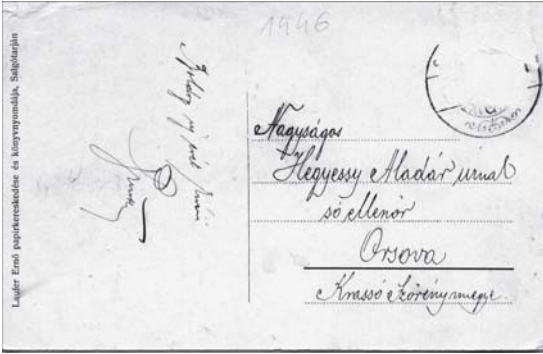 1446
Laufer Ernő papirkereskedése és könyvnyomdája, Salgótarján
Boldog uj évet
Nagyságos
Hegyessy Aladár urnak
só ellenőr
Orsova
Krassó Szörénymegye.